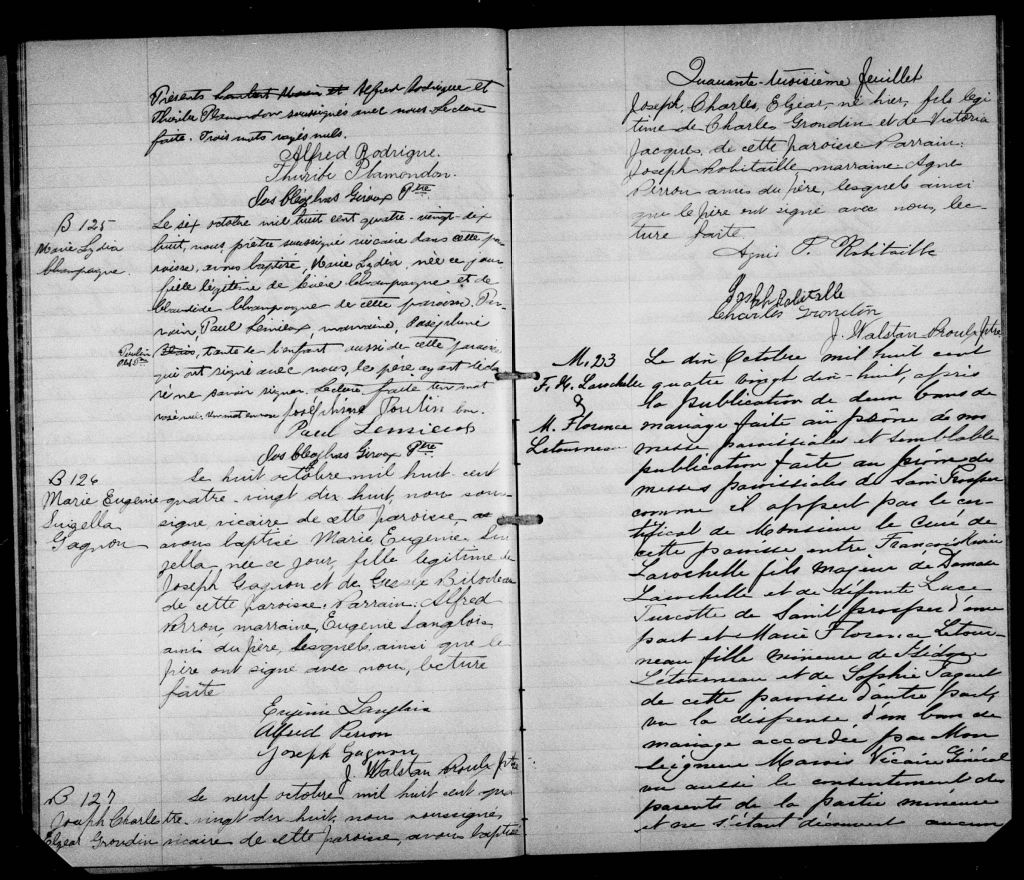 Présents Lambert Morin et Alfred Rodrigue et
Thuribe Plamondon soussignés avec nous. Lecture
faite. Trois mots rayés nuls.
Alfred Rodrigue.
Thuribe Plamondon.
Jos Cléophas Giroux Ptre
B 125
Marie Lydia
Champagne.
Le six octobre mil huit cent quatre-vingt-dix
huit, nous prêtre soussigné vicaire dans cette pa-
roisse, avons baptisé, Marie Lydia, née ce jour
fille légitime de Champagne et de
Champagne de cette paroisse. Par-
rain, Paul Lemieux, marraine, Joséphine
Poulin
tante de l'enfant aussi de cette paroisse
qui ont signé avec nous, le père ayant décla-
ré ne savoir signer. Lecture faite. un mot
rayé nul. Un mot en
Joséphine Poulin
Paul Lemieux
Jos Cléophas Giroux Ptre
B 126
Marie Eugenie
Luizella
Gagnon
Le huit octobre mil huit cent
quatre-vingt dix huit, nous sous-
signé vicaire de cette paroisse,
avons baptisé Marie Eugenie Lui
zella, née ce jour, fille legitime de
Joseph Gagnon et de Bilodeau
de cette paroisse. Parrain. Alfred
Perron, marraine, Eugenie Langlois
amis du père, lesquels ainsi que le
père ont signé avec nous, lecture
faite
Eugénie Langlois
Alfred Perron
Joseph Gagnon
J. Walstan Proulx ptre
B 127
Joseph Charle
Elzear Grondin
Le neuf octobre mil huit cent qua
tre-vingt dix huit, nous soussigné,
vicaire de cette paroisse, avons baptisé
Quarante-troisième feuillet
Joseph, Charles, Elzear, né hier, fils legi
time de Charles Grondin et de Victoria
Jacques, de cette paroisse Parrain:
Joseph Robitaille marraine Agne
Perron amis du père, lesquels ainsi
que le père ont signé avec nous, lec-
ture faite
Agnes P. Robitaille
Joseph Robitaille
Charles Grondin
J. Walstan Proulx ptre
M. 23
F. H. Larochelle
&
M. Florence
Letourneau
Le dix Octobre mil huit cent
quatre vingt dix-huit, après
la publication de deux bans de
mariage faite au prône de nos
messes paroissiales et semblable
publication faite au prône des
messes paroissiales de Saint Prosper
comme il appert par le cer-
tificat de Monsieur le Curé de
cette paroisse entre François
Larochelle fils majeur de Damase
Larochelle et de défunte Luce
Turcotte de Saint prosper d'une
part et Marie Florence Letour-
neau fille mineure de
Létourneau et de Sophie Paquet
de cette paroisse d'autre part,
vu la dispense d'un ban de
mariage accordée par Mon
seigneur Marois Vicaire Général
vu aussi le consentement des
parents de la partie mineure
et ne s'étant découvert aucun